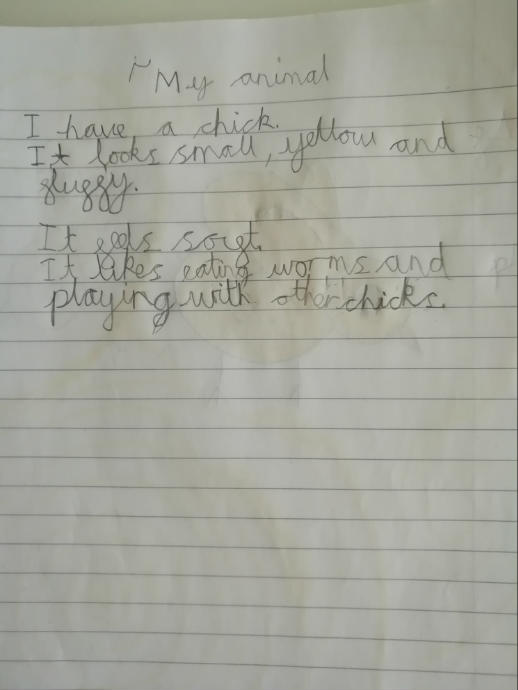 My animal
I have a chick.
It looks small, yellow and
fluffy.
It feels soft.
It likes eating worms and
playing with other chicks.